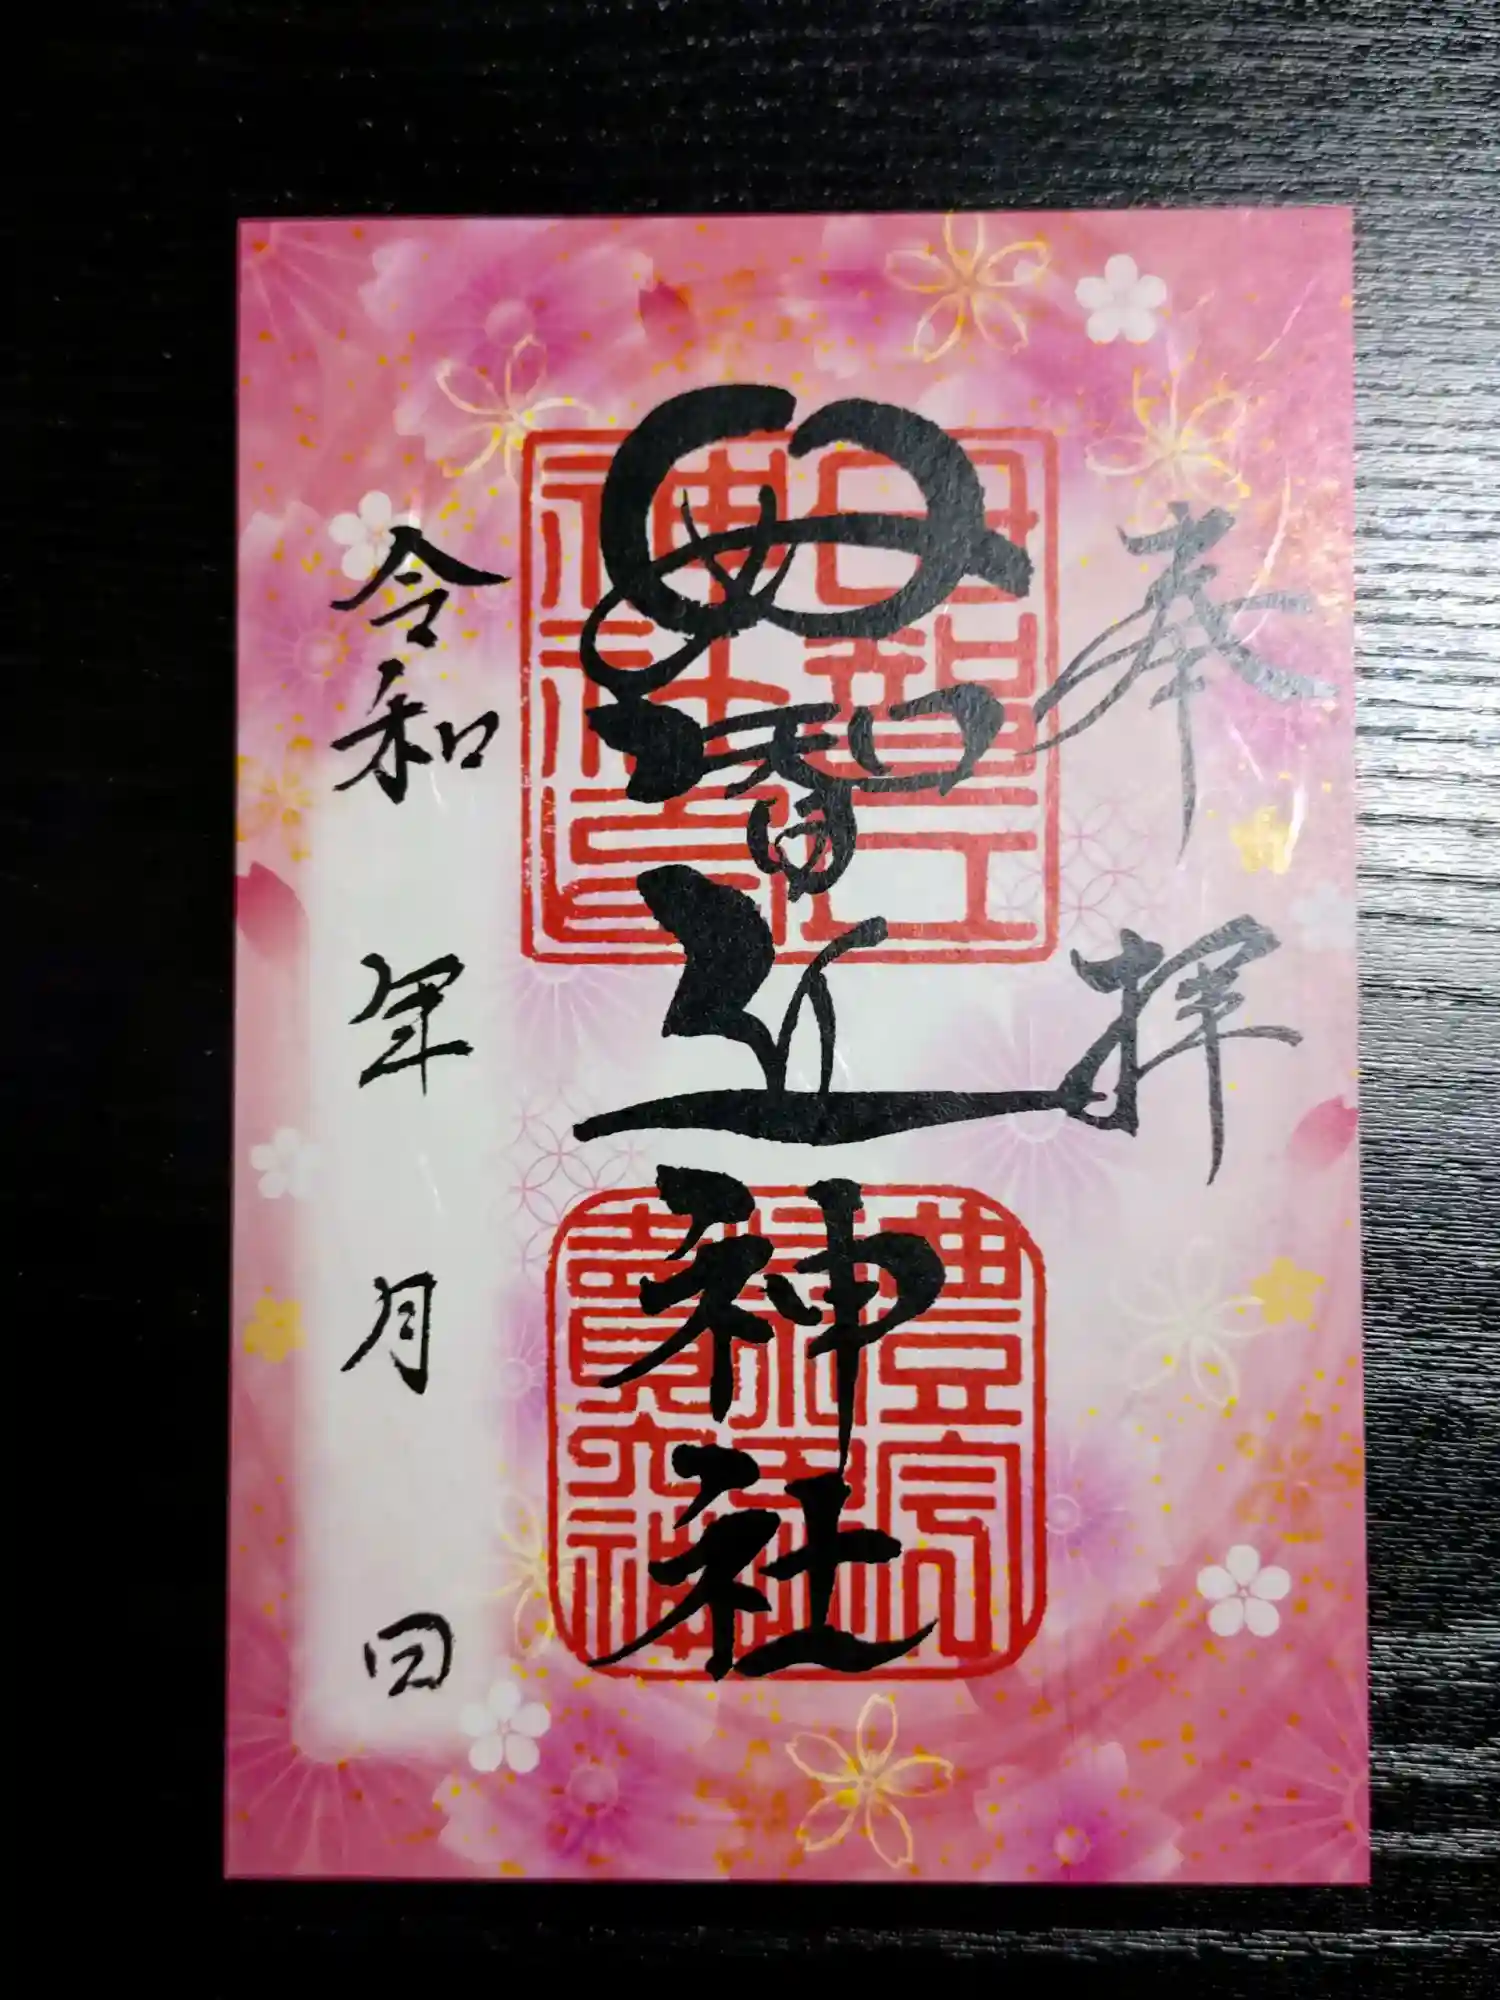 奉拝
母智丘神社
母智丘
神社之印
令和 年 月 日